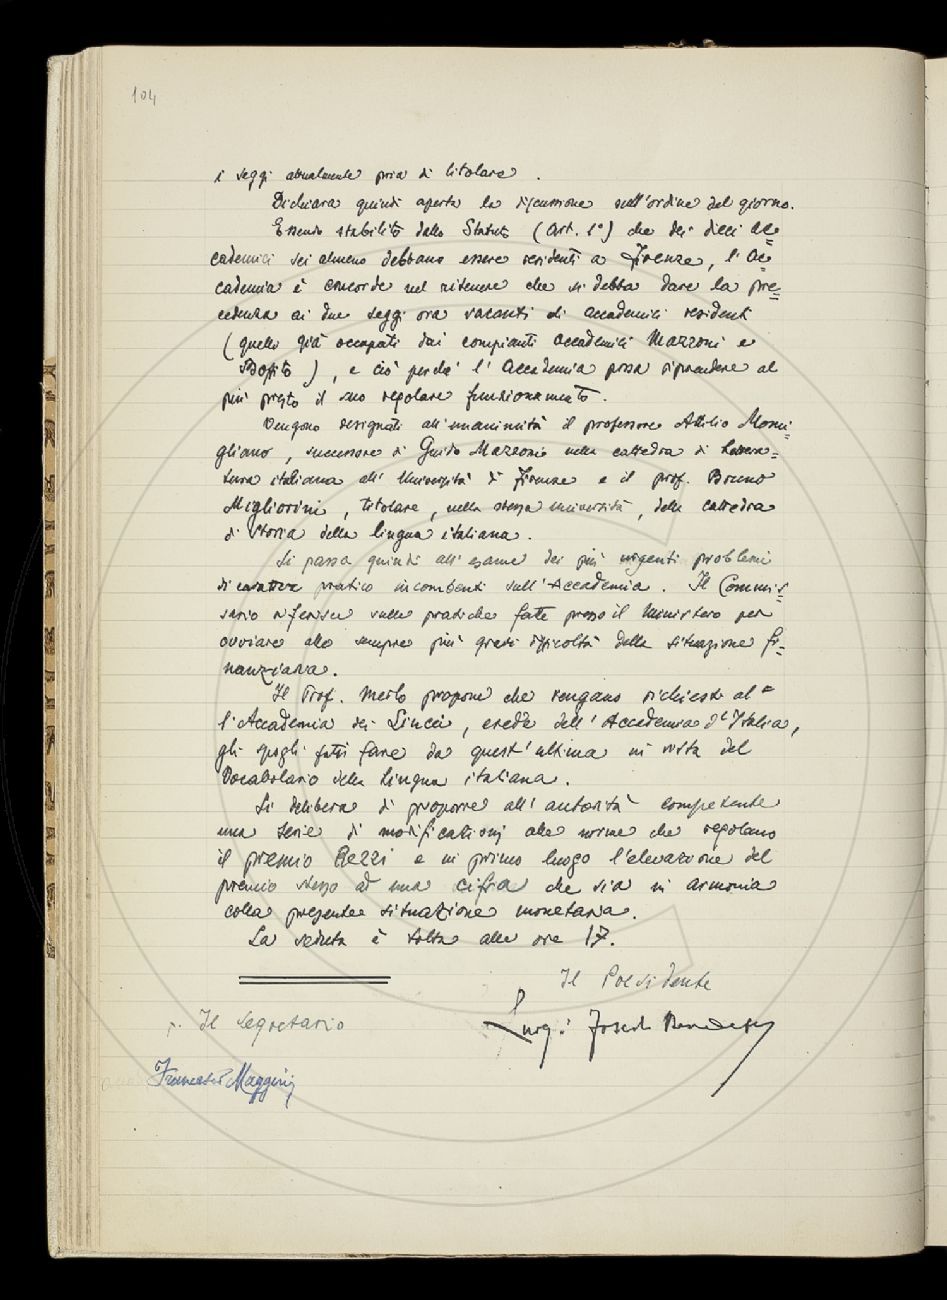 104
i seggi attualmente privi di titolare.
Dichiara quindi aperta la discussione sull'ordine del giorno.
Essendo stabilito dallo Statuto (art. 1°) che dei dieci ac=
cademici sei almeno debbano essere residenti a Firenze, l'Ac=
cademia è concorde nel ritenere che si debba dare la pre=
cedenza ai due seggi ora vacanti di accademici residenti
(quelli già occupati dai compianti accademici Mazzoni e
Boffito), e ciò perché l'Accademia possa riprendere al
più presto il suo regolare funzionamento.
Vengono designati all'unanimità il professore Attilio Momi=
gliano, successore di Guido Mazzoni nella cattedra di Lettera=
tura italiana all'Università di Firenze e il prof. Bruno
Migliorini, titolare, nella stessa università, della cattedra
di Storia della lingua italiana.
Si passa quindi all'esame dei più urgenti problemi
di carattere pratico incombenti sull'Accademia. Il Commis=
sario riferisce sulle pratiche fatte presso il Ministero per
ovviare alle sempre più gravi difficoltà della situazione fi=
nanziaria.
Il Prof. Merlo propone che vengano richiesti al=
l'Accademia dei Lincei, erede dell'Accademia d'Italia,
gli spogli fatti fare da quest'ultima in vista del
Vocabolario della lingua italiana.
Si delibera di proporre all'autorità competente
una serie di modificazioni alle norme che regolano
il premio Rezzi e in primo luogo l'elevazione del
premio stesso ad una cifra che sia in armonia
colla presente situazione monetaria.
La seduta è tolta alle ore 17.
Il Presidente
Il Segretario
Luigi Foscolo Benedetto
Francesco Maggini